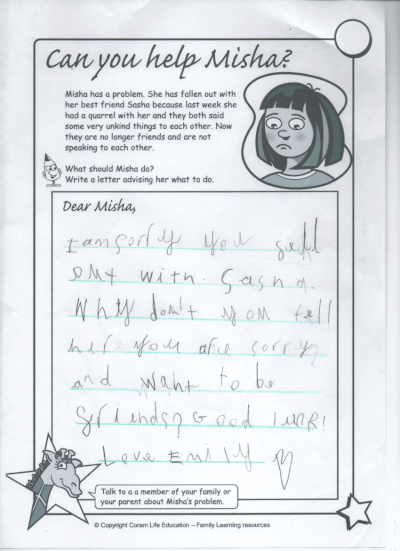 Can you help Misha?
Misha has a problem. She has fallen out with
her best friend Sasha because last week she
had a quarrel with her and they both said
some very unkind things to each other. Now
they are no longer friends and are not
speaking to each other.
What should Misha do?
Write a letter advising her what to do.
Dear Misha,
I am sorry you fell
out with. Sasha.
Why don't you tell
her you are sorry
and want to be
friends? Good luck!
Love Emily
Talk to a a member of your family or
your parent about Misha's problem.
© Copyright Coram Life Education – Family Learning resources